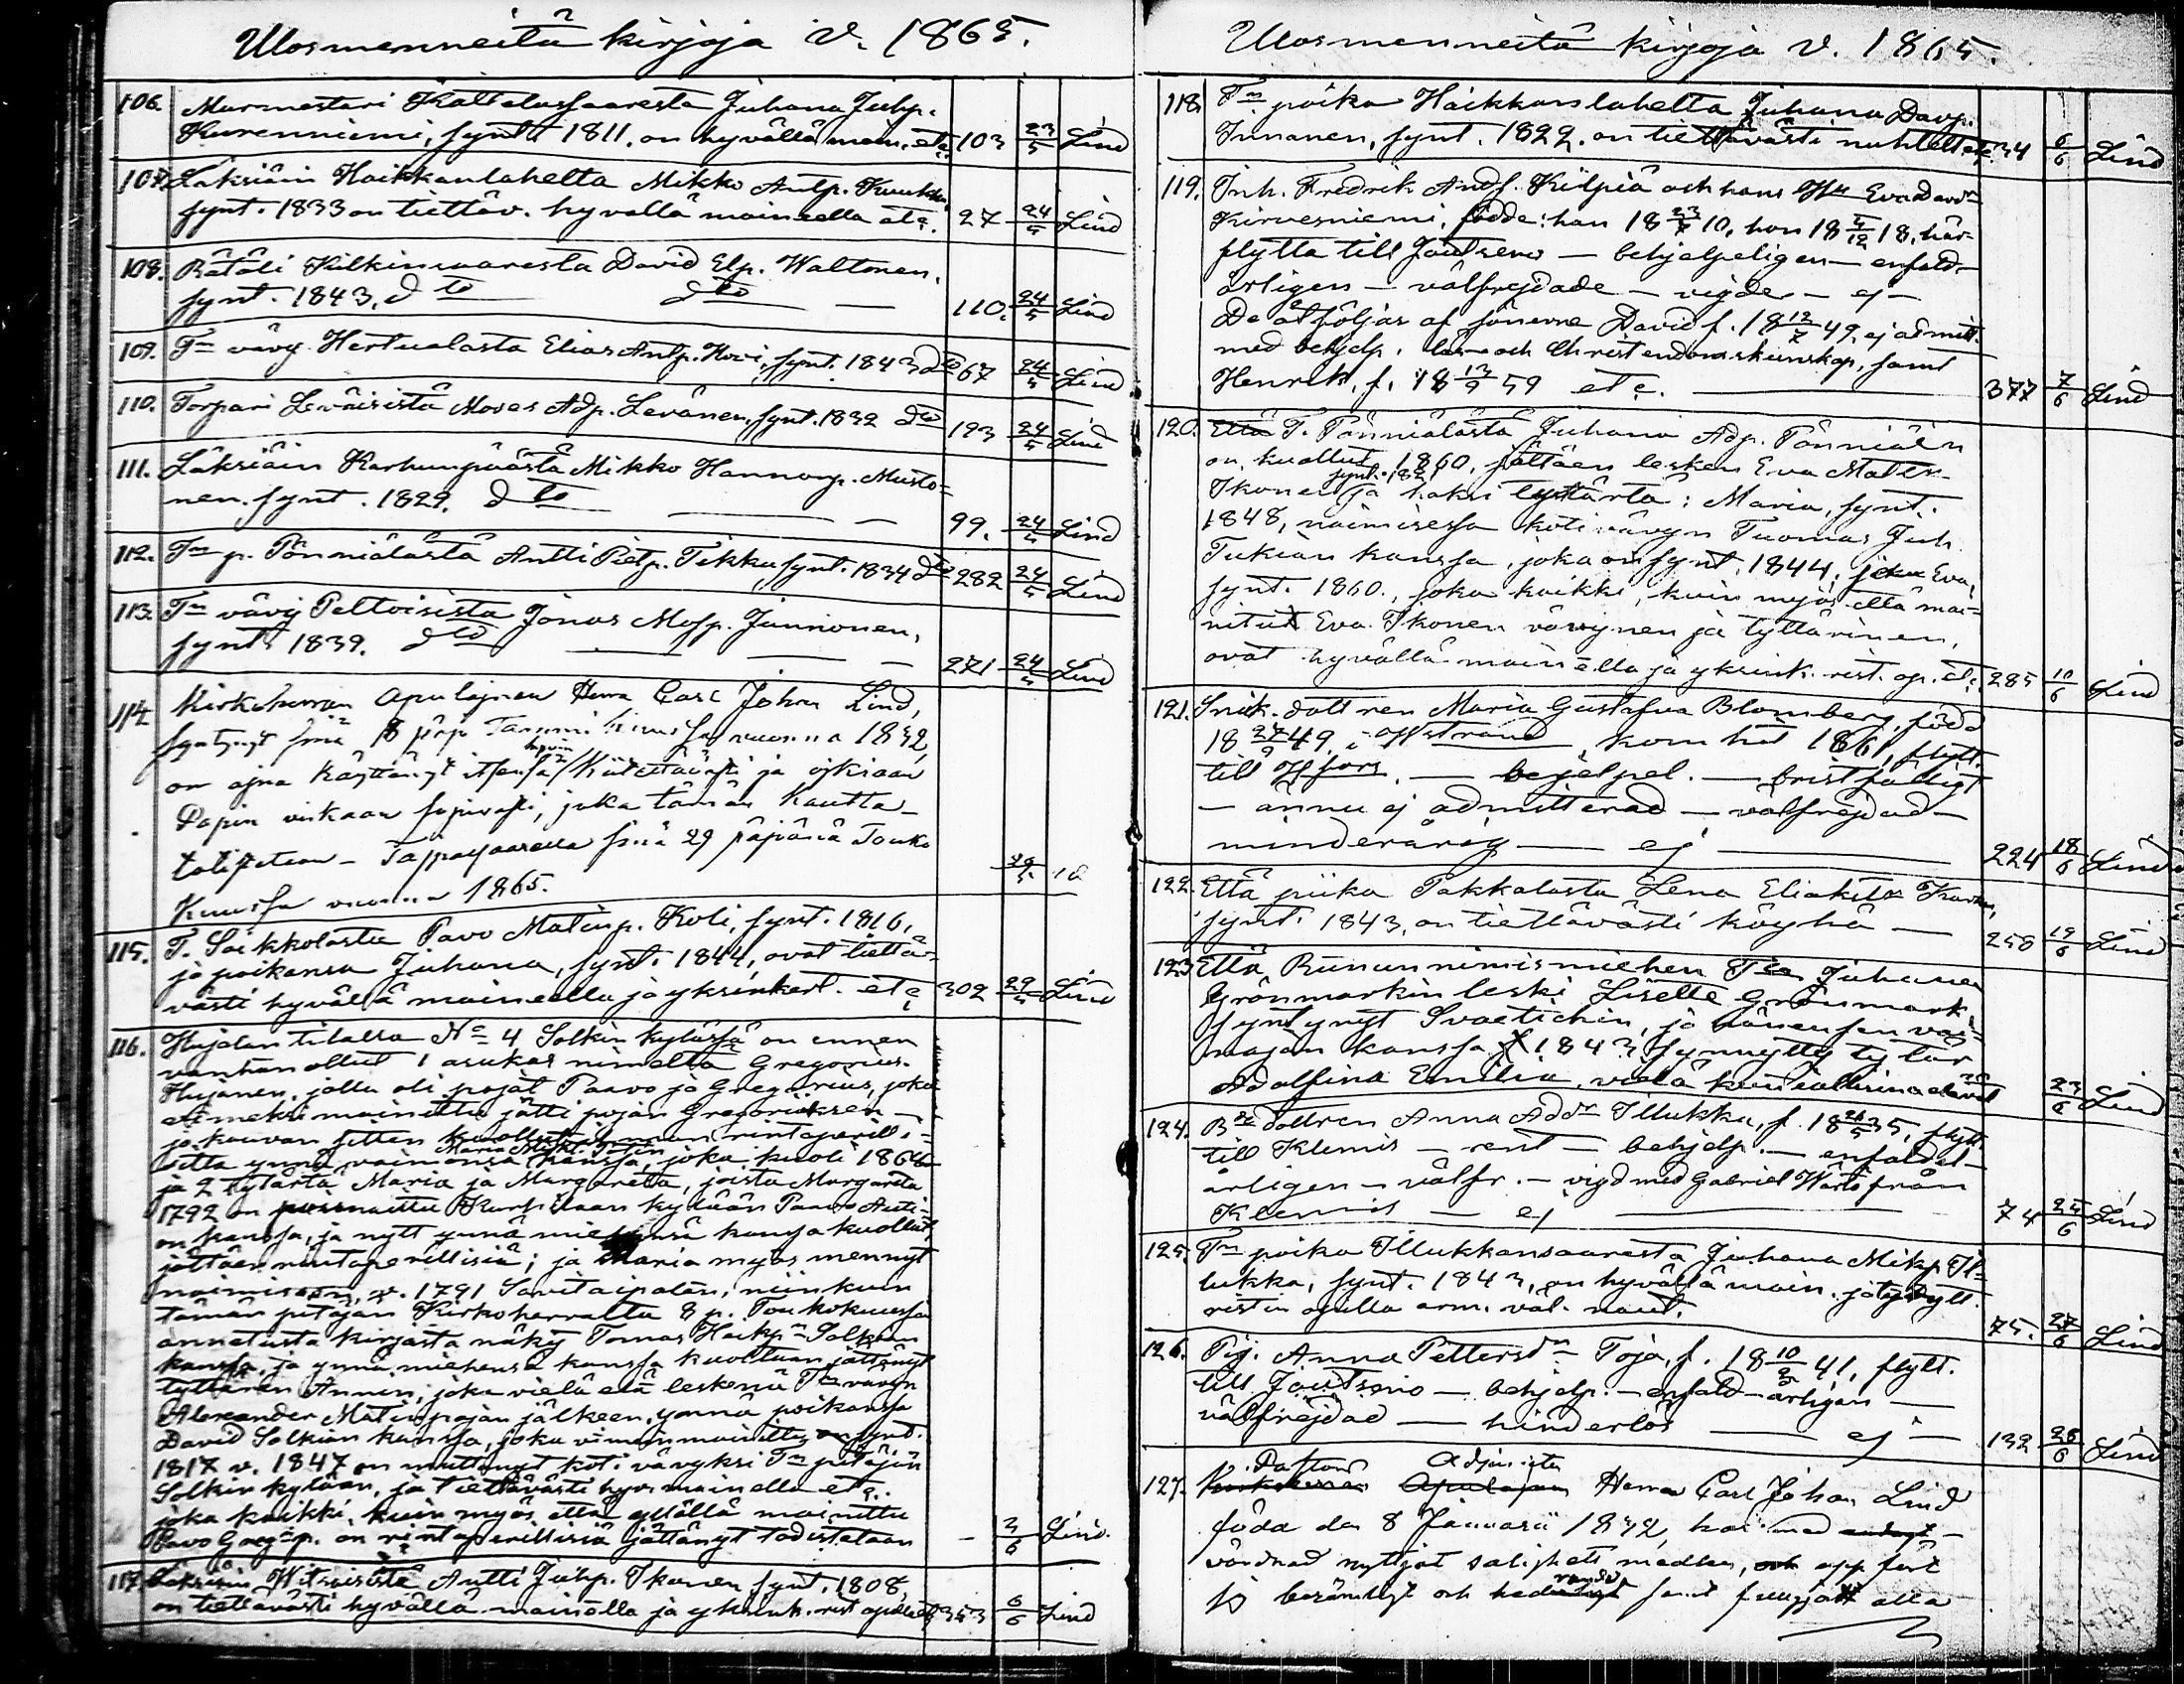 Ulosmenneitä kirjoja v. 1865.
106. Murmestari Kattelussaaresta Juhana Juhp.
Kurenniemi, synt. 1811, on hyvällä main. etc. 103 23/5 Lind
107. Läksiäin Haikkanlahelta Mikko Antp.
synt. 1833 on tiettäv. hyvällä maineella etc. 27 24/5 Lind
108. Rätäli Kilkinsaaresta David Elp. Waltonen,
synt. 1843, dto dto — 110. 24/5 Lind
109. Tn vävy Hertualasta Elias Antp. Hovi, synt. 1843 dto 67 24/5 Lind
110. Torpari Leväisistä Moses Adp. Levänen, synt. 1832 dto 193 24/5 Lind
111. Läksiäin Karhunpäästä Mikko Hannup. Musto=
nen, synt. 1829. dto — — 99. 24/5 Lind
112. Tn p. Pönniälästä Antti Pietp. Tikka synt. 1834 dto 282 24/5 Lind
113. Tn vävy Peltoisista Jonas Mosp. Jünnonen,
synt. 1839. dto — — — 271 24/5 Lind
114. Kirkoherran Apulajnen Herra Carl Johan Lind,
syntynyt sinä 8 päp Tammi Kuussa vuonna 1832,
on ajna käyttänyt itsensä hyvin Kiitettävästi ja ojkiaan
Papin virkaan sopivasti, joka tämän Kautta
totistetaan — Tajpalsaarella sinä 29 päjvänä Touko
Kuussa vuonna 1865. 29/5
115. T. Saikkolasta Pavo Matinp. Koli, synt. 1816,
ja poikansa Juhana, synt. 1844, ovat tiettä=
västi hyvällä maineella ja yksinkert. etc 302 29/5 Lind
116. Hujalan tilalla No 4 Solkin kylässä on ennen
vanhan ollut 1 asukas nimeltä Gregorius
Hujanen, jolla oli pojat Paavo ja Gregorius, joka
viimeksi mainittu jätti pojan Gregoriuksen —
ja kauvan sitten kuollut ilman rintaperilli=
sittä ynnä vaimonsa Maria Mikk. kanssa, joka kuoli 1864
ja 2 tytärtä Maria ja Margaretta, joista Margareta
1792 on naitu kylään Paavo
on kanssa, ja nytt ynnä miehensä kanssa kuollut,
jättäen rintaperillisiä; ja Maria myös mennyt
naimiseen, v. 1791 Savitaipalen, niinkuin
tämän pitäjän Kirkoherralta 8 p. Toukokuussa
annetusta kirjasta näky Tomas Heikp:n Solkian
kanssa, ja ynnä miehensä kanssa kuoltuan jättänyt
tyttären Annin, joka vielä elä leskenä Tn vävyn
Alexander Matinpojan jälkeen, ynnä poikansa
David Solkian kanssa, joka viimein mainittu on synt.
1817 v. 1847 on muttanyt koti vävyksi Tn pitäjän
Solkin kylään, ja tiettävästi hyv. mainella etc.
joka kaikki, kuin myös että ylällä mainittu
Pavo Greg:p. on rintaperillisiä jättänyt todistetaan — 2/6 Lind
117. Läksiäin Witsaisista Antti Juhp. Ikonen synt. 1808,
on tiettävästi hyvällä mainella ja yksink. rist opilla etc 353 6/6 Lind
Ulosmenneitä kirjoja v. 1865.
118. Tn poika Haikkanlahelta Juhana Davp.
Innanen, synt. 1822, on tiettävästi nuhteet etc. 34 6/6 Lind
119. Inh. Fredrik Andr. Kilpiä och hans Hu Eva Davdr
Kirvesniemi, födde: han 18 23/7 10, hon 18 4/12 18, här
flytta till Joutseno — behjelpeligen — enfald—
ärligen — välfrejdade — vigde — ej —
De åtföljas af sönerne David f. 18 12/7 49, ej admitt.
med behjelp. läs= och Christendomskunskap, samt
Henrik, f. 18 13/9 59 etc. — 377 7/6 Lind
120. T. Pönniälästä Juhana Adp. Pönniäin
on kuollut 1860, jättäen lesken Eva
Ikonen synt. ja kaksi tytärtä: Maria, synt.
1848, naimisessa kotivävyn Tuomas Juh.
Tukiän kanssa, joka on synt. 1844; ja Eva,
synt. 1860, joka kaikki, kuin myös että mai=
nitut Eva Ikonen vävynen ja tyttärinen,
ovat hyvällä mainella ja yksink. rist. op. etc. 285 10/6 Lind
121. Snik. dottren Maria Gustafva Blomberg, född
18 27/9 49, i Hstrand, kom hit 1861, flytt.
till Hfors. — bejelpel. — bristfälligt
— ännu ej admitterad — välfrejdad —
minderårig — ej — 224 18/6 Lind
122. Että piika Pakkalasta Lena Eliaksen
synt. 1843, on tiettävästi köyhä — 258 19/6 Lind
123. Että Ruununnimismiehen Juhana
Grönmarkin leski Lisette Grönmark,
syntynyt Svaetichin, ja hänen sen vai=
najan kanssa 1843 synnytty tytär
Adolfina Emilia, vielä elävät 23/6 Lind
124. Bde dottren Anna Addr Illukka, f. 18 26/5 35, flytt
till Klemis — rent — behjelp. — enfaldel—
ärligen — välfr. — vigd med Gabriel från
Klemis — ej — 74 24/6 Lind
125. Tn poika Illukkansaaresta Juhana Mikp. Il=
lukka, synt. 1843, on hyvällä main. ja
ristin opilla arm. väl. naut. 75. 27/6 Lind
126. Pig. Anna Pettersdr Toja, f. 18 10/2 41, flytt.
till Joutseno — behjelp. — enfald — ärligen —
välfrejdad — hinderlös — ej — 132 28/6 Lind
127. Pastors Adjuncten
Kirkoherran Apulajnen Herra Carl Johan Lind
föda den 8 Januarii 1832, har med —
vördnad nyttjat salighets medlen, och uppfört
sig berömligt och samt fullgjort alla